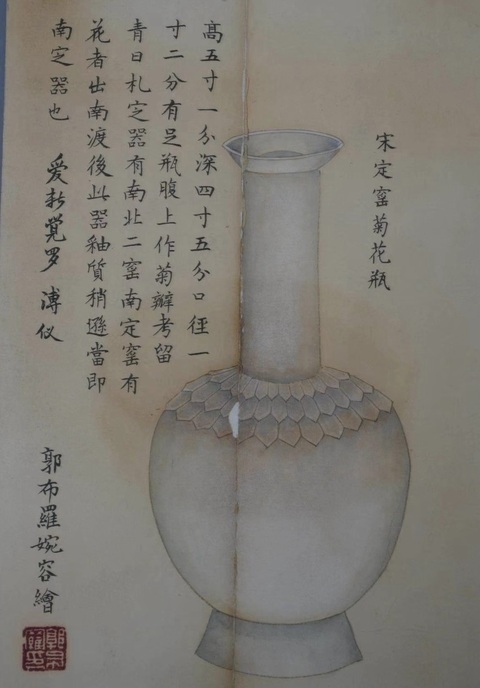 宋定窰菊花瓶
高五寸一分深四寸五分口徑一
寸二分有足瓶腹上作菊瓣考留
青日札定器有南北二窰南定窰有
花者出南渡後此器釉質稍遜當即
南定器也 爱新覺罗 溥仪
郭布羅婉容繪